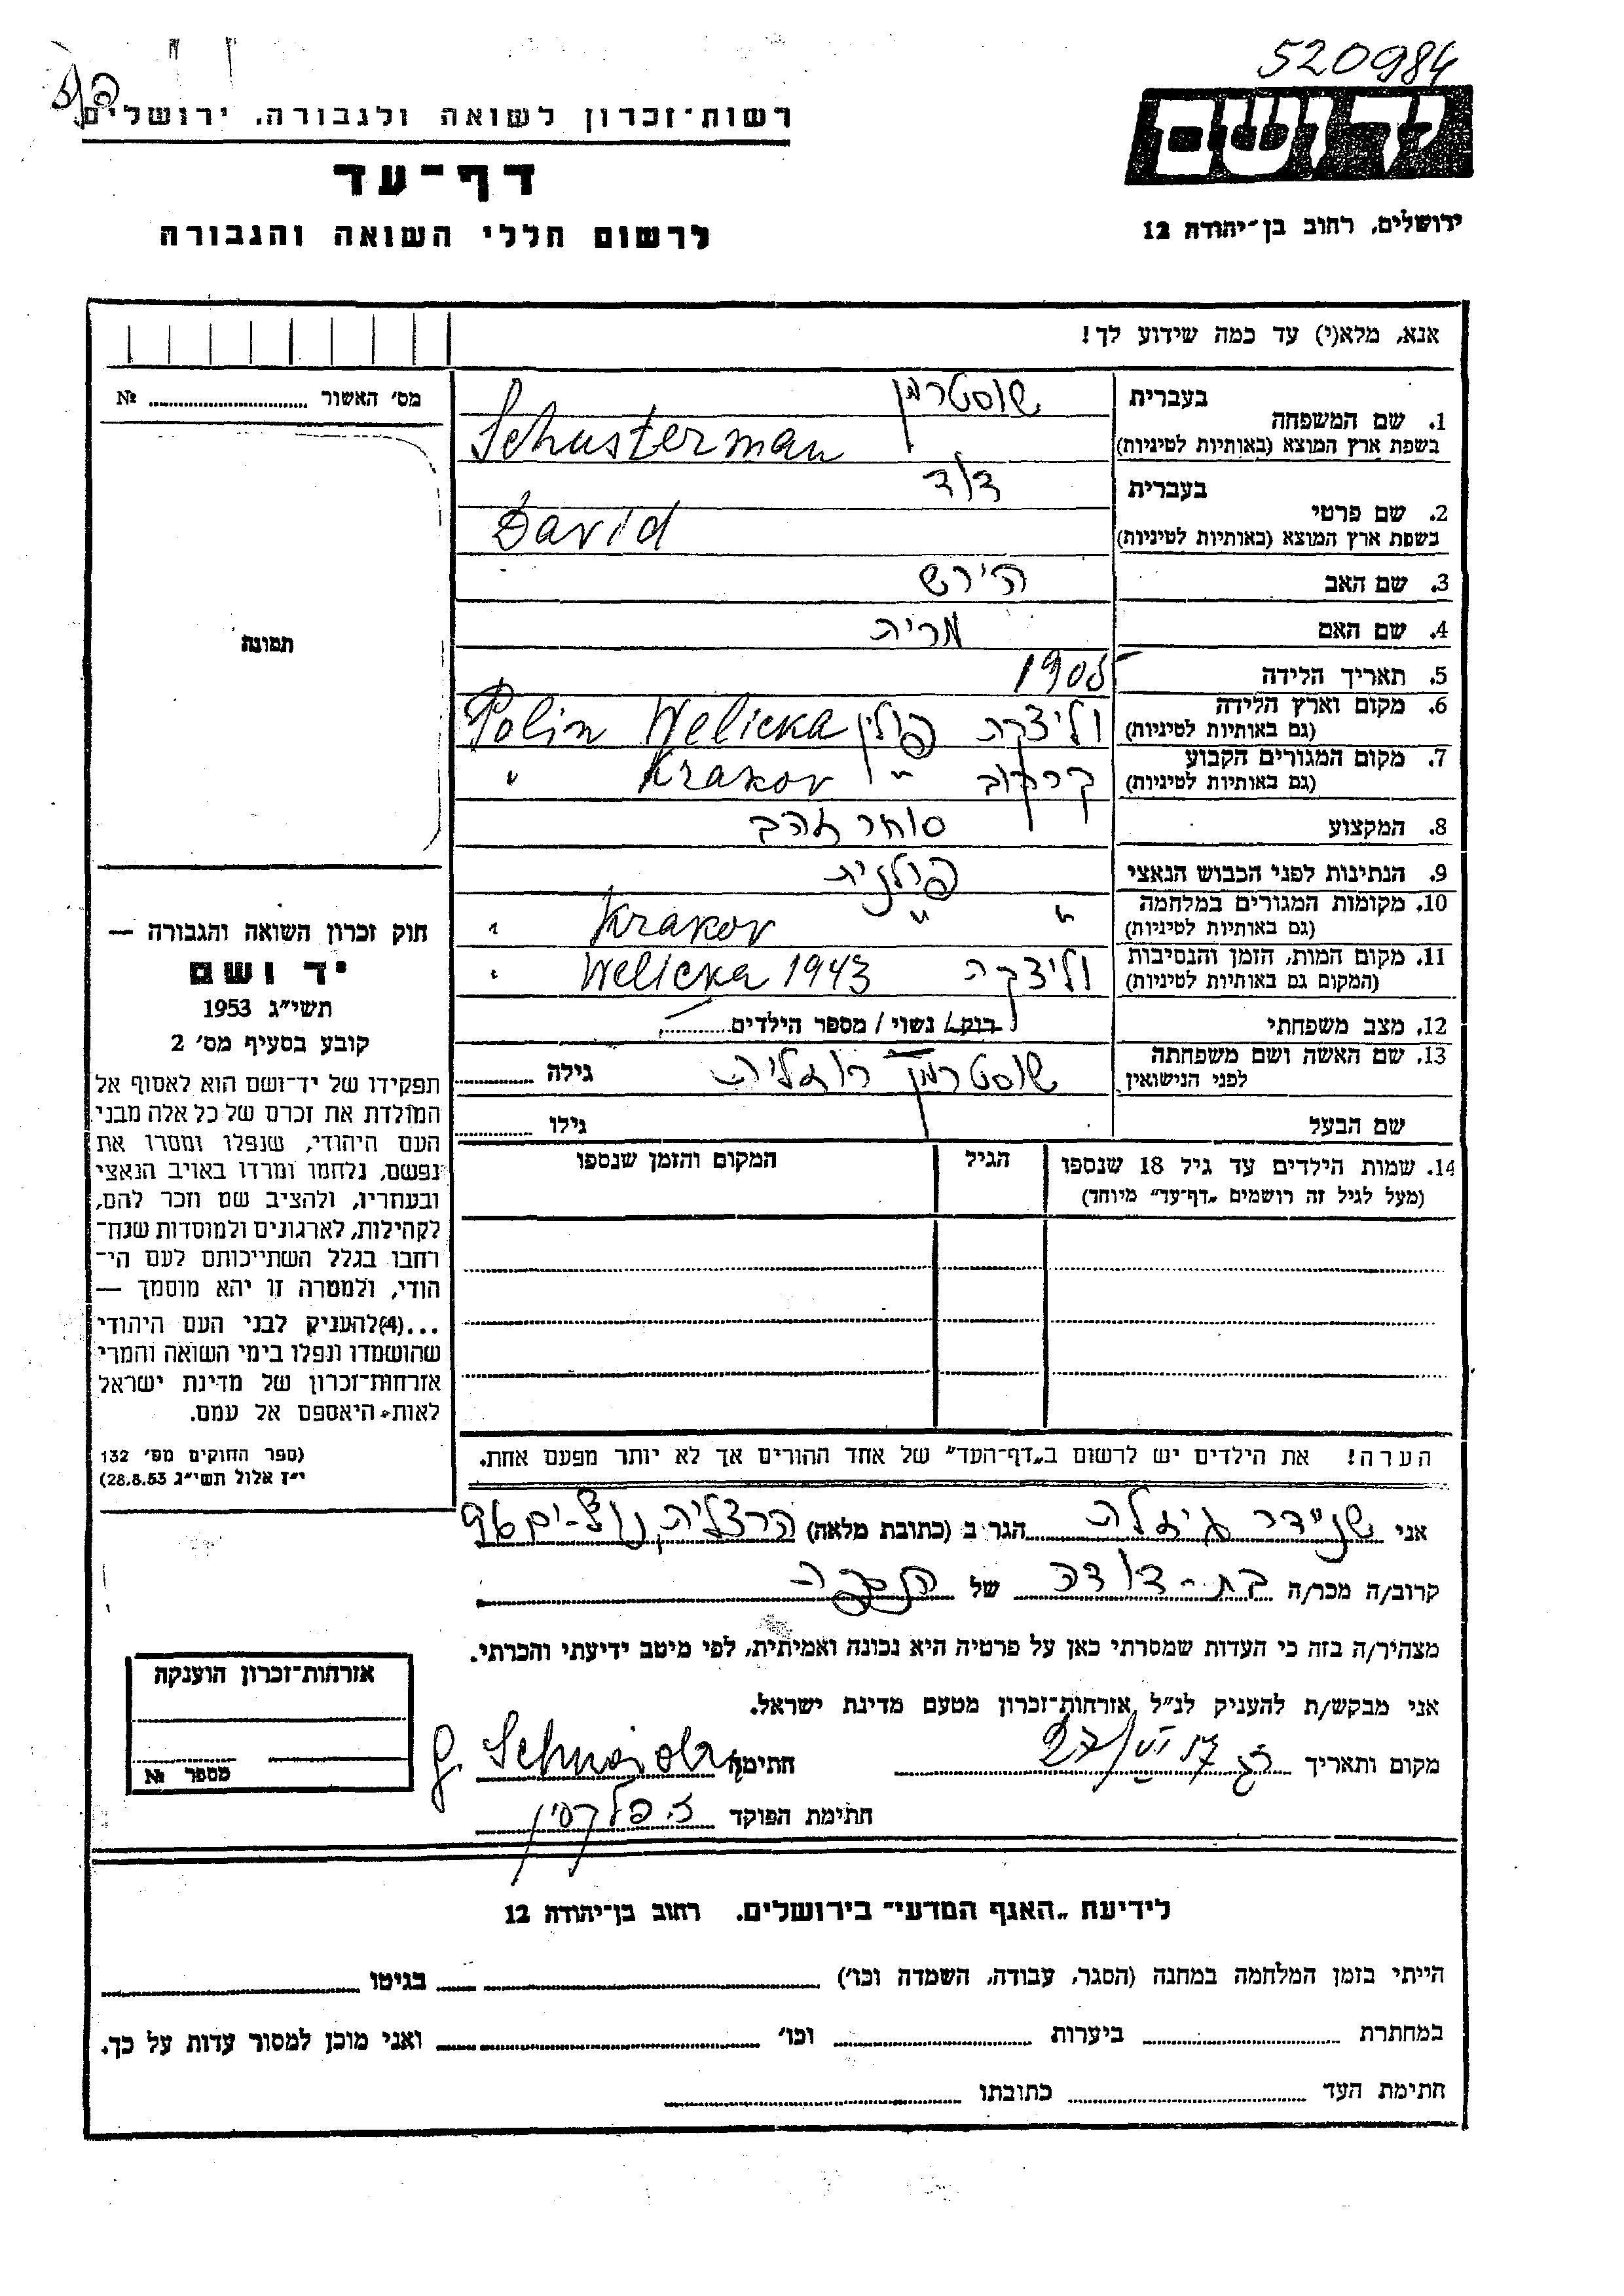 520984
רשות-זכרון לשואה ולגבורה, ירושלים
דף-עד
לרשום חללי השואה והגבורה
יד ושם
ירושלים, רחוב בן-יהודה 12
אנא, מלא(י) עד כמה שידוע לך!
מס' האשור № 
תמונה
חוק זכרון השואה והגבורה —
יד ושם
תשי"ג 1953
קובע בסעיף מס' 2
תפקידו של יד-ושם הוא לאסוף אל
המולדת את זכרם של כל אלה מבני
העם היהודי, שנפלו ומסרו את
נפשם, נלחמו ומרדו באויב הנאצי
ובעוזריו, ולהציב שם וזכר להם,
לקהילות, לארגונים ולמוסדות שנח-
רחבו בגלל השתייכותם לעם הי-
הודי, ולמטרה זו יהא מוסמך —
...(4)להעניק לבני העם היהודי
שהושמדו ונפלו בימי השואה והמרי
אזרחות-זכרון של מדינת ישראל
לאות היאספם אל עמם.
(ספר החוקים מס' 132
י"ז אלול תשי"ג 28.8.53)
בעברית שוסטרמן
1. שם המשפחה
בשפת ארץ המוצא (באותיות לטיניות) Schusterman
בעברית דוד
2. שם פרטי
בשפת ארץ המוצא (באותיות לטיניות) David
3. שם האב הירש
4. שם האם מריה
5. תאריך הלידה 1905
6. מקום וארץ הלידה וליצקה פולין Welicka Polin
(גם באותיות לטיניות)
7. מקום המגורים הקבוע קרקוב " Krakov "
(גם באותיות לטיניות)
8. המקצוע סוחר זהב
9. הנתינות לפני הכבוש הנאצי פולנית
10. מקומות המגורים במלחמה " " Krakov "
(גם באותיות לטיניות)
11. מקום המות, הזמן והנסיבות וליצקה Welicka 1943 "
(המקום גם באותיות לטיניות)
12. מצב משפחתי רווק/ נשוי/ מספר הילדים
13. שם האשה ושם משפחתה שוסטרמן רוזליה גילה
לפני הנישואין
שם הבעל גילו
14. שמות הילדים עד גיל 18 שנספו הגיל המקום והזמן שנספו
(מעל לגיל זה רושמים "דף-עד" מיוחד)
הערה! את הילדים יש לרשום ב"דף-העד" של אחד ההורים אך לא יותר מפעם אחת.
אני שניידר גיזלה הגר ב (כתובת מלאה) הרצליה נוף-ים 96
קרוב/ה מכר/ה בת-דודה של הנספה
מצהיר/ה בזה כי העדות שמסרתי כאן על פרטיה היא נכונה ואמיתית, לפי מיטב ידיעתי והכרתי.
אני מבקש/ת להעניק לנ"ל אזרחות-זכרון מטעם מדינת ישראל.
מקום ותאריך חתימה G. Schneider
חתימת הפוקד
אזרחות-זכרון הוענקה
מספר №
לידיעת "האגף המדעי" בירושלים. רחוב בן-יהודה 12
הייתי בזמן המלחמה במחנה (הסגר, עבודה, השמדה וכו') בגיטו
במחתרת ביערות וכו' ואני מוכן למסור עדות על כך.
חתימת העד כתובתו